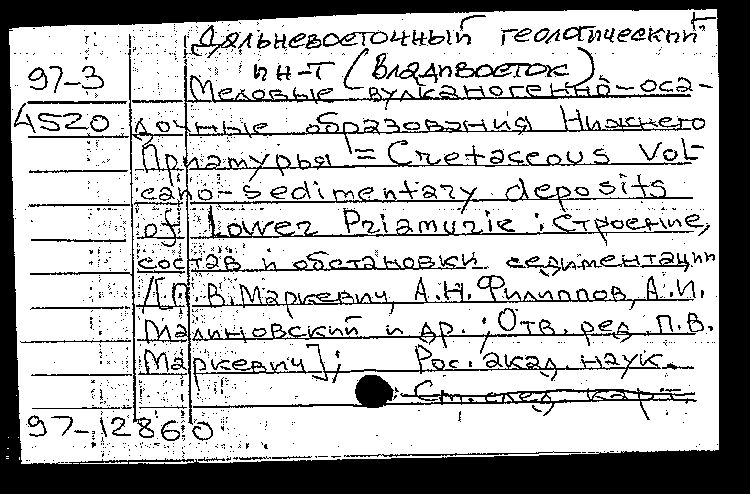 Дальневосточный геологический
ин-т (Владивосток)
97-3
Меловые вулканогенно-оса-
4520
дочные образования Нижнего
Приамурья = Cretaceous Vol-
cano-sedimentary deposits
of Lower Priamurie : Строение,
состав и обстановки седиментации
/[П.В. Маркевич, А.Н. Филиппов, А.И.
Малиновский и др. ; Отв. ред. П.В.
Маркевич] ; Рос. акад. наук.
Ст. след. карт.
97-12860